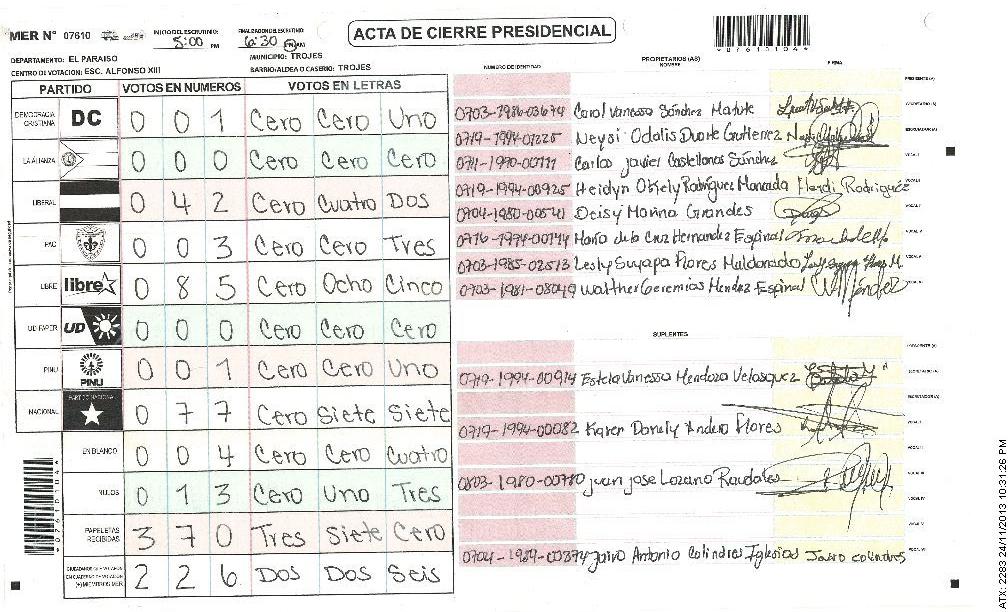 MER N° 07610
INICIO DEL ESCRUTINIO: 5:00 PM
FINALIZACION DEL ESCRUTINIO: 6:30 PM AM
ACTA DE CIERRE PRESIDENCIAL
DEPARTAMENTO: EL PARAISO
MUNICIPIO: TROJES
CENTRO DE VOTACION: ESC. ALFONSO XIII
BARRIO/ALDEA O CASERIO: TROJES
PARTIDO VOTOS EN NUMEROS VOTOS EN LETRAS
DEMOCRACIA CRISTIANA DC 0 0 1 Cero Cero Uno
LA ALIANZA 0 0 0 Cero Cero Cero
LIBERAL 0 4 2 Cero Cuatro Dos
PAC 0 0 3 Cero Cero Tres
LIBRE libre 0 8 5 Cero Ocho Cinco
UD FAPER UD 0 0 0 Cero Cero Cero
PINU PINU 0 0 1 Cero Cero Uno
NACIONAL PARTIDO NACIONAL 0 7 7 Cero Siete Siete
EN BLANCO 0 0 4 Cero Cero Cuatro
NULOS 0 1 3 Cero Uno Tres
PAPELETAS RECIBIDAS 3 7 0 Tres Siete Cero
2 2 6 Dos Dos Seis
PROPIETARIOS (AS)
NUMERO DE IDENTIDAD NOMBRE FIRMA
0703-1986-03674 Carol Vanessa Sánchez Matute
0719-1994-01225 Neysi Odalis Duarte Gutierrez
Carlos Javier Castellanos Sánchez
0719-1994-00925 Heidyn Oksely Rodríguez Moncada Heydi Rodriguez
0704-1980-00541 Deisy Marina Grandes
María de la Cruz Hernandez Espinal
0703-1985-02513 Lesly Suyapa Flores Maldonado
0703-1981-08049 Walther Geremias Mendez Espinal
SUPLENTES
0719-1994-00914 Estela Vanessa Mendoza Velasquez
0719-1994-00082 Karen Donely Andero Flores
0803-1980-00780 Juan Jose Lozano Raudales
0704-1989-00374 Jairo Antonio Colindres Iglesias Jairo colindres
*07610104*
ATX: 2283 24/11/2013 10:31:26 PM